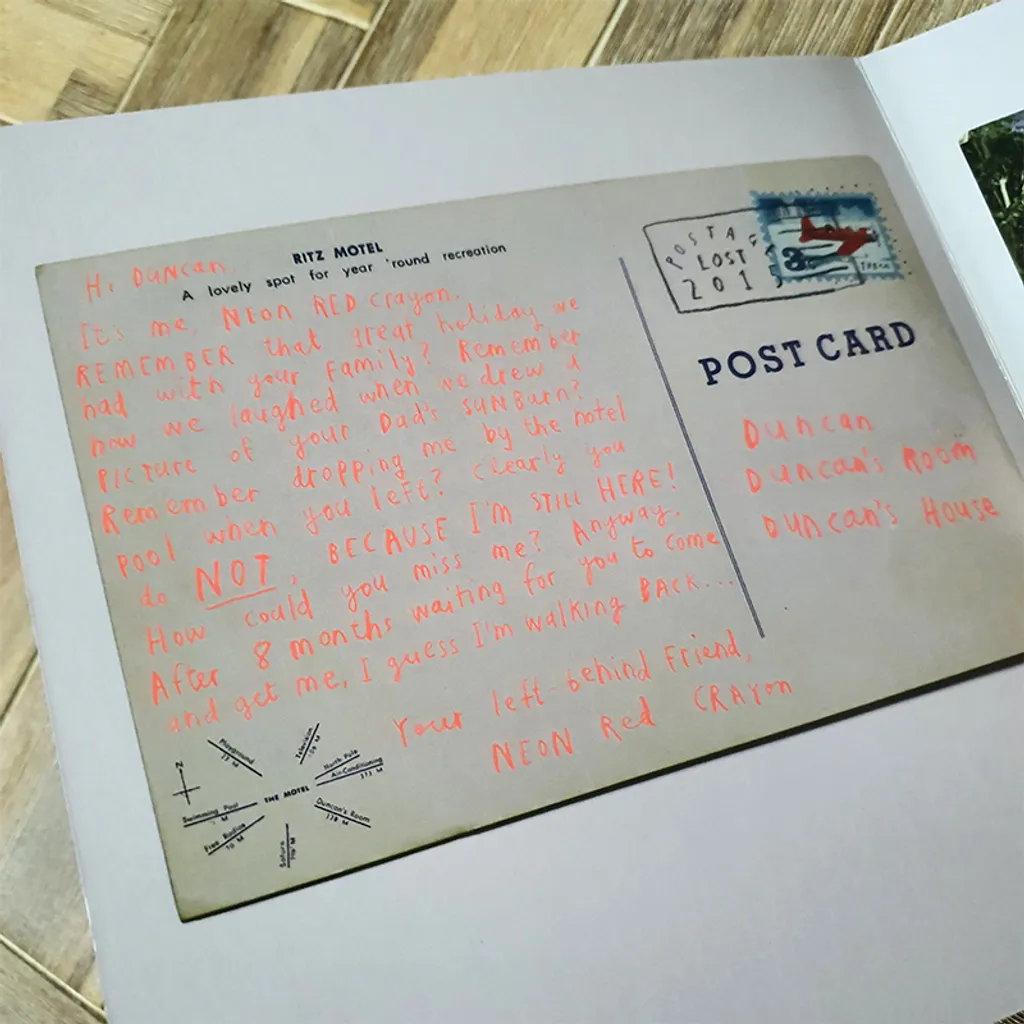 RITZ MOTEL
A lovely spot for year 'round recreation
Hi Duncan,
It's me, NEON RED Crayon.
REMEMBER that great holiday we
had with your Family? Remember
how we laughed when we drew a
PICTURE of your Dad's SUNBurn?
Remember dropping me by the hotel
pool when you left? Clearly you
do NOT, BECAUSE I'M STILL HERE!
How could you miss me? Anyway.
After 8 months waiting for you to come
and get me, I guess I'm walking BACK...
Your left-behind Friend,
NEON Red CRAYon
POSTAG
LOST
201
3
POST CARD
Duncan
Duncan's Room
Duncan's House
N
Playground
Television
North Pole
Air-Conditioning
Swimming Pool
THE MOTEL
Duncan's Room
Free Radios